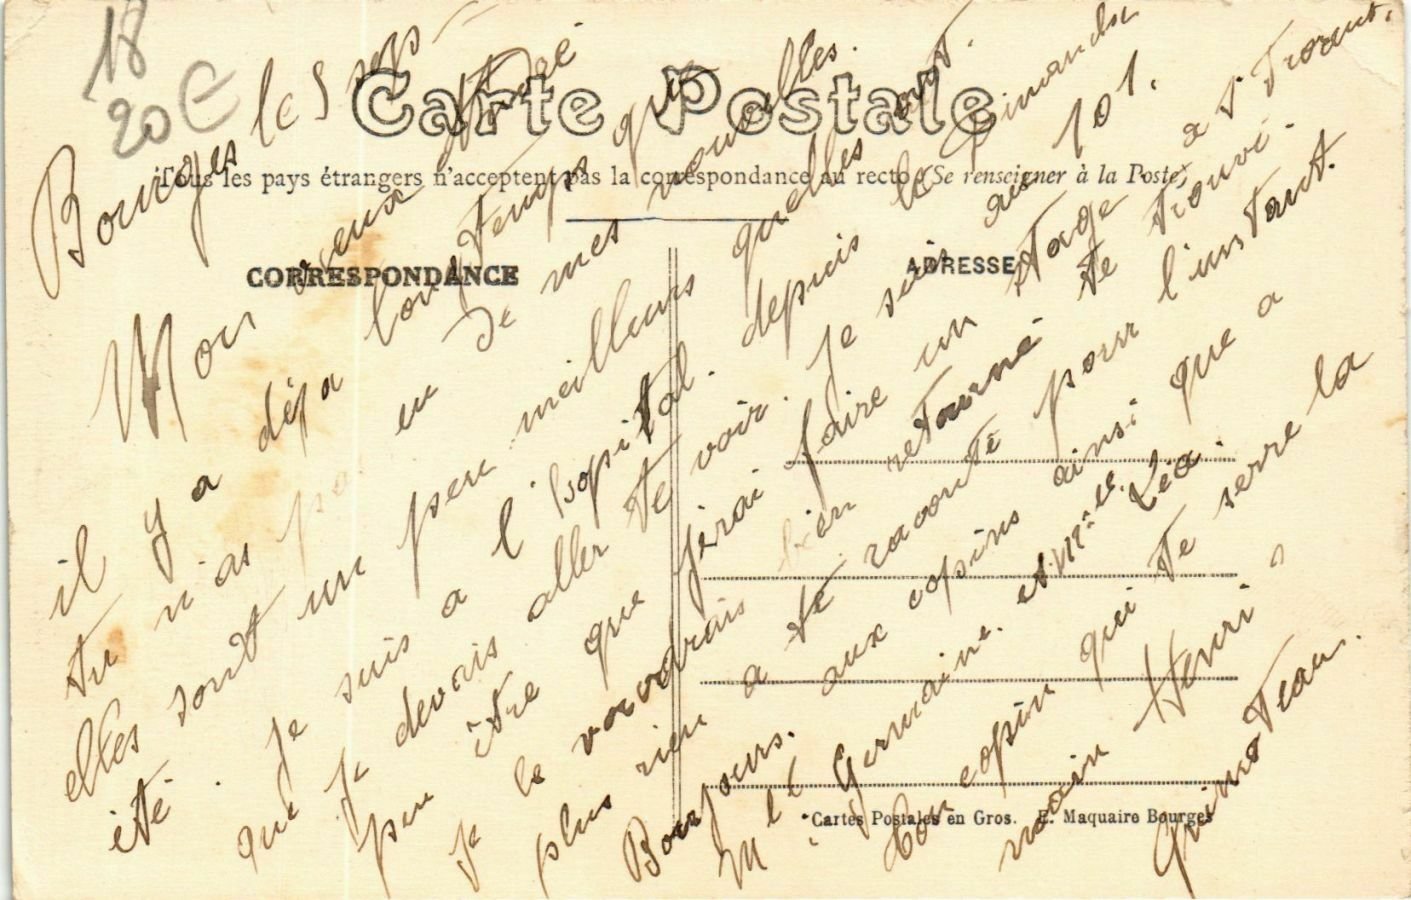 18
20€
Carte Postale
Tous les pays étrangers n'acceptent pas la correspondance au recto (Se renseigner à la Poste)
CORRESPONDANCE
ADRESSE
Bourges le 5 sep
Mon vieux
il y a déja longtemps que
tu n'as pa eu de mes nouvelles.
elles sont un peu meilleurs quelles ont
été. Je suis a l'hopital. depuis le Dimanche
que je devais aller te voir. Je suis au 101.
peu être que jirai faire un stage a St Florent.
je le voudrais bien retourné te trouvé.
plus rien a te raconté pour l'instant.
Bonjours. aux copins ainsi que a
Mlle Germaine. et Mlle Léa.
Ton copin qui te serre la
main Henri
Guimoteau.
Cartes Postales en Gros. E. Maquaire Bourges